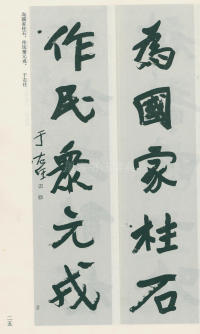 為國家柱石
作民衆元戎
于右任
為國家柱石，作民衆元戎。 于右任
二五